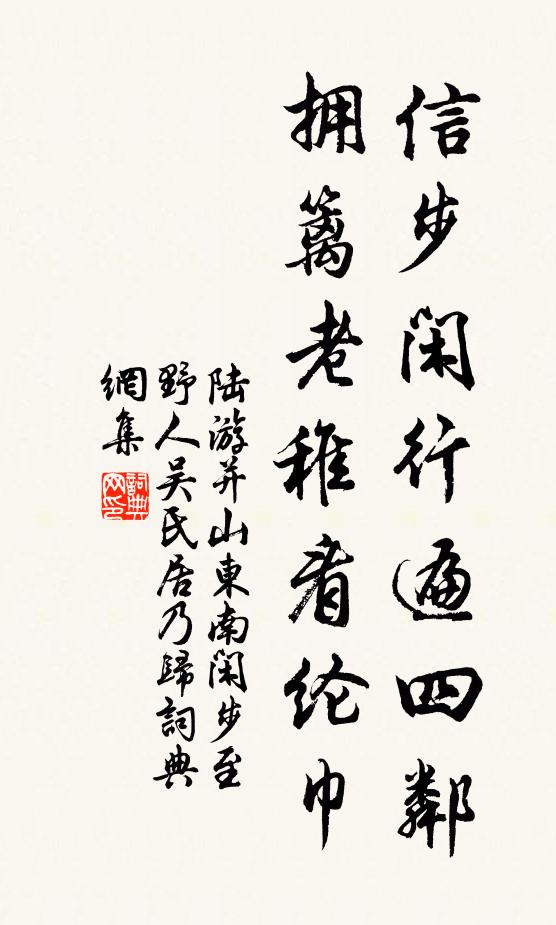 信步閑行遍四鄰
拥篱老稚看纶巾
陆游并山東南閑步至
野人吴氏居乃歸詞典
網集
詞典
网印